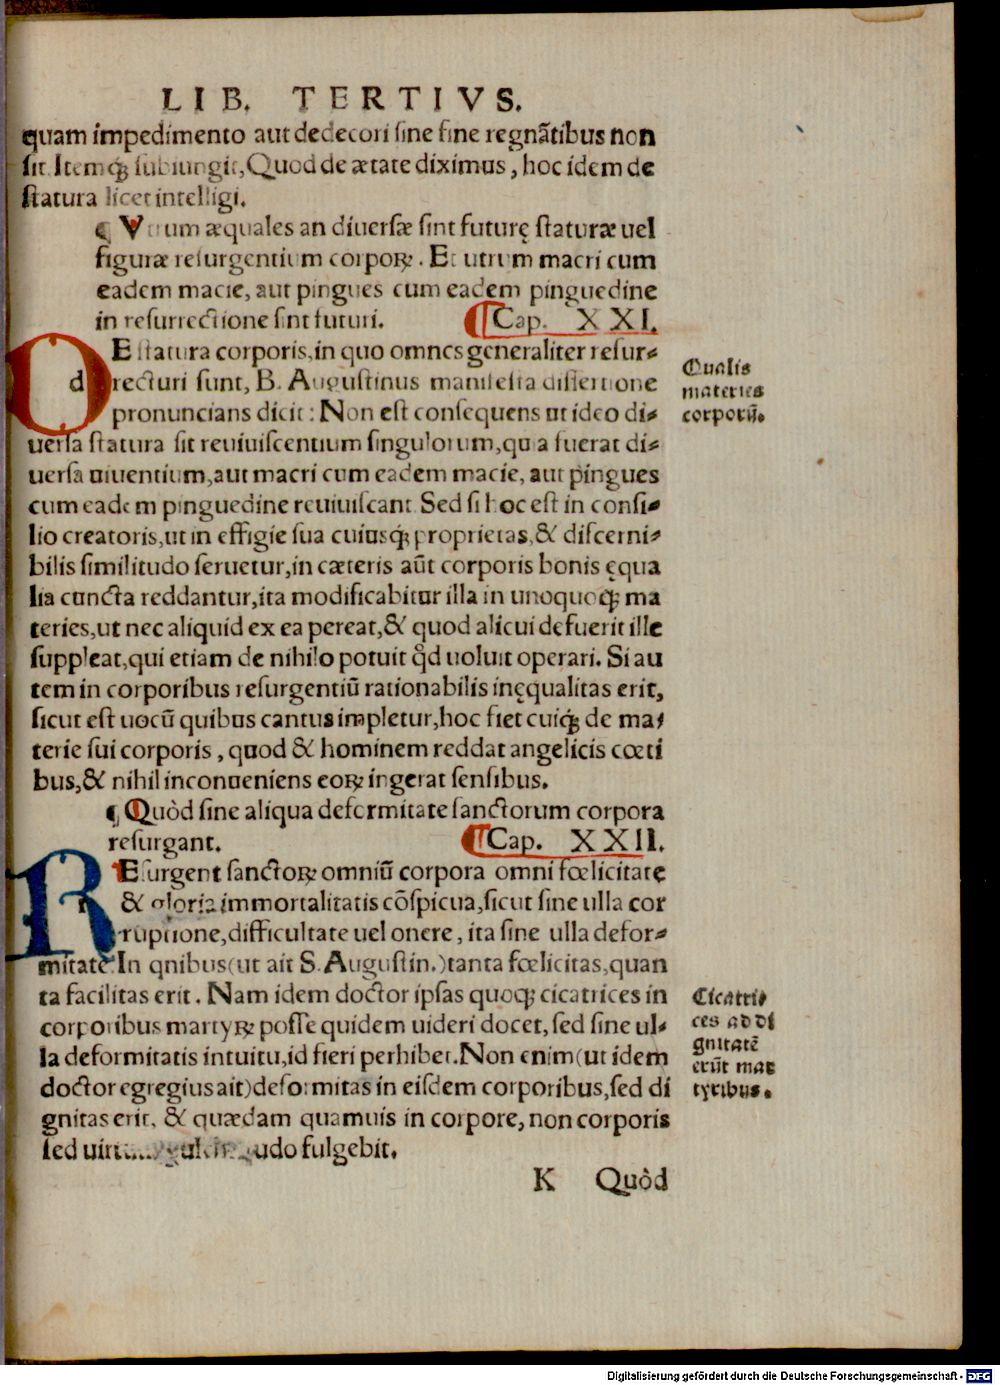 LIB. TERTIVS.
quam impedimento aut dedecori sine fine regnãtibus non
sit. Itemq; subiungit, Quod de ætate diximus, hoc idem de
statura licet intelligi.
¶ Vtrum æquales an diuersæ sint futurę staturæ uel
figuræ resurgentium corpoꝝ. Et utrum macri cum
eadem macie, aut pingues cum eadem pinguedine
in resurrectione sint futuri. ¶ Cap. XXI.
DE statura corporis, in quo omnes generaliter resur-
recturi sunt, B. Augustinus manifesta dissertione
pronuncians dicit: Non est consequens ut ideo di-
uersa statura sit reuiuiscentium singulorum, quia fuerat di-
uersa uiuentium, aut macri cum eadem macie, aut pingues
cum eadem pinguedine reuiuiscant. Sed si hoc est in consi-
lio creatoris, ut in effigie sua cuiusq; proprietas, & discerni-
bilis similitudo seruetur, in cæteris aũt corporis bonis ęqua
lia cuncta reddantur, ita modificabitur illa in unoquoq; ma
teries, ut nec aliquid ex ea pereat, & quod alicui defuerit ille
suppleat, qui etiam de nihilo potuit qd̃ uoluit operari. Si au
tem in corporibus resurgentiũ rationabilis inęqualitas erit,
sicut est uocũ quibus cantus impletur, hoc fiet cuiq; de ma-
terie sui corporis, quod & hominem reddat angelicis cœti
bus, & nihil inconueniens eoꝝ ingerat sensibus.
¶ Quòd sine aliqua deformitate sanctorum corpora
resurgant. ¶ Cap. XXII.
REsurgent sanctoꝝ omniũ corpora omni fœlicitate
& gloria immortalitatis cõspicua, sicut sine ulla cor
ruptione, difficultate uel onere, ita sine ulla defor-
mitate. In qnibus (ut ait S. Augustin.) tanta fœlicitas, quan
ta facilitas erit. Nam idem doctor ipsas quoq; cicatrices in
corporibus martyꝝ posse quidem uideri docet, sed sine ul-
la deformitatis intuitu, id fieri perhibet. Non enim (ut idem
doctor egregius ait) deformitas in eisdem corporibus, sed di
gnitas erit, & quædam quamuis in corpore, non corporis
sed fulgebit.
K Quòd
Qualis
materies
corporũ.
Cicatri-
ces ad di
gnitatẽ
erũt mar
tyribus.
Digitalisierung gefördert durch die Deutsche Forschungsgemeinschaft - DFG